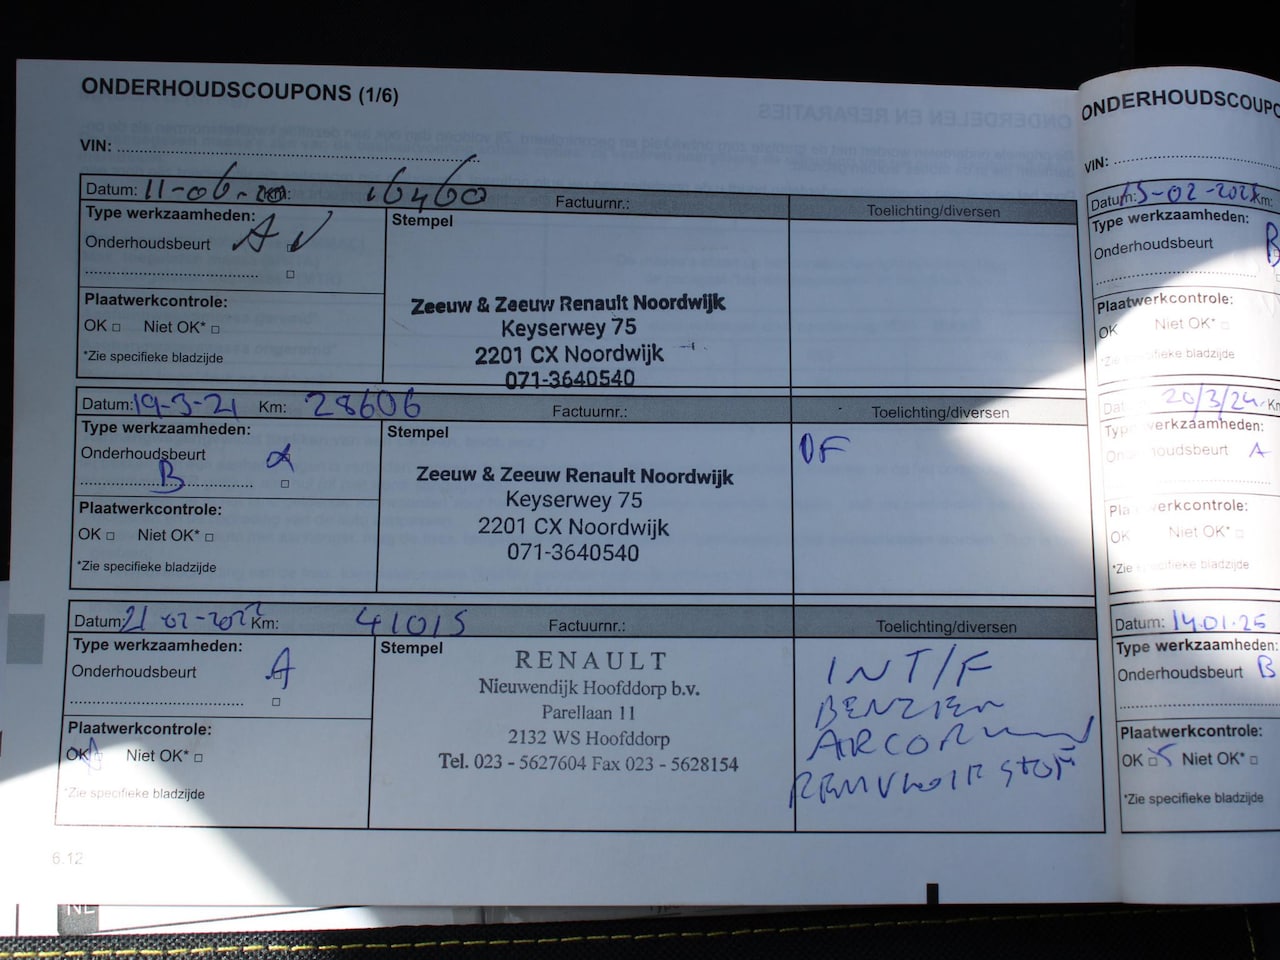 ONDERHOUDSCOUPONS (1/6)
VIN:
Datum: 11-06-20 Km: 16460 Factuurnr.: Toelichting/diversen
Type werkzaamheden: Stempel
Onderhoudsbeurt A
Plaatwerkcontrole:
OK □ Niet OK* □
*Zie specifieke bladzijde
Zeeuw & Zeeuw Renault Noordwijk
Keyserwey 75
2201 CX Noordwijk
071-3640540
Datum: 19-3-21 Km: 28606 Factuurnr.: Toelichting/diversen
Type werkzaamheden: Stempel
Onderhoudsbeurt
B
Plaatwerkcontrole:
OK □ Niet OK* □
*Zie specifieke bladzijde
Zeeuw & Zeeuw Renault Noordwijk
Keyserwey 75
2201 CX Noordwijk
071-3640540
OF
Datum: 21-02-2022 Km: 41015 Factuurnr.: Toelichting/diversen
Type werkzaamheden: Stempel
Onderhoudsbeurt A
Plaatwerkcontrole:
OK Niet OK* □
*Zie specifieke bladzijde
RENAULT
Nieuwendijk Hoofddorp b.v.
Parellaan 11
2132 WS Hoofddorp
Tel. 023 - 5627604 Fax 023 - 5628154
INT/F
BENZIEN
AIRCO
REMVLOEISTOF
6.12
NL
ONDERHOUDSCOUPO
VIN:
Datum: 15-02-2023 Km:
Type werkzaamheden:
Onderhoudsbeurt B
Plaatwerkcontrole:
OK Niet OK* □
*Zie specifieke bladzijde
Dat 20/3/24 Km
Typ werkzaamheden:
On houdsbeurt A
Pla werkcontrole:
OK Niet OK* □
*Zie specifieke bladzijde
Datum: 14.01.25
Type werkzaamheden:
Onderhoudsbeurt B
Plaatwerkcontrole:
OK □ Niet OK* □
*Zie specifieke bladzijde